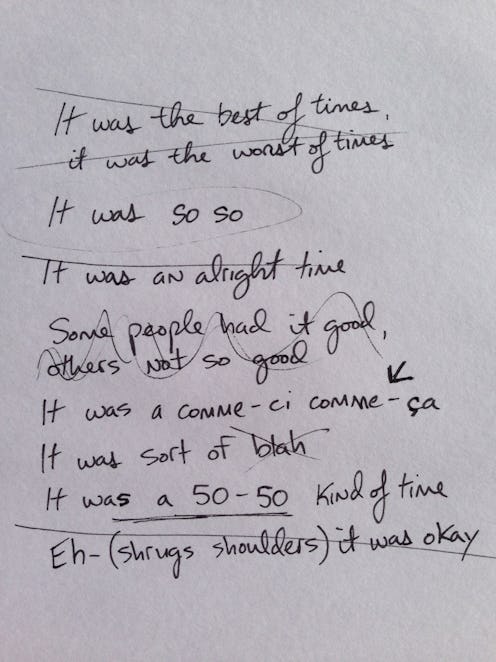 It was the best of times,
it was the worst of times
It was so so
It was an alright time
Some people had it good,
others not so good
It was a comme-ci comme-ça
It was sort of blah
It was a 50-50 kind of time
Eh-(shrugs shoulders) it was okay